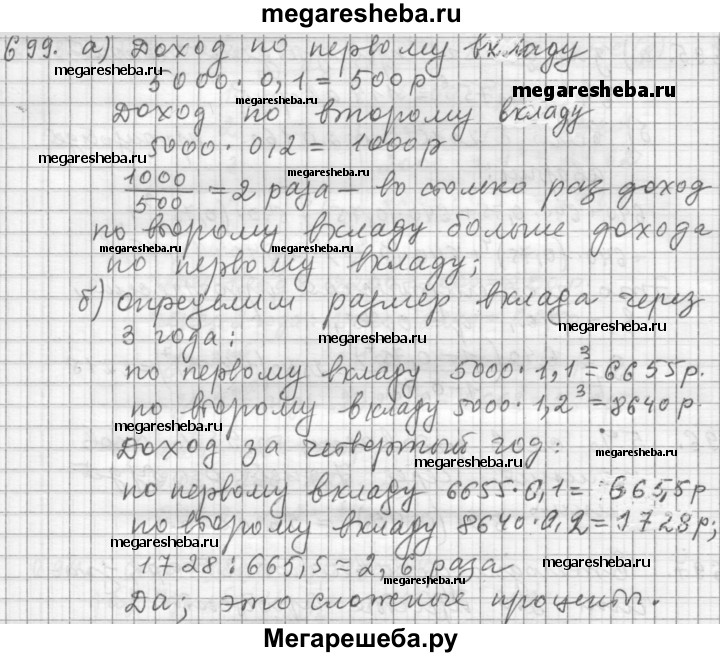 megaresheba.ru
699. а) Доход по первому вкладу
megaresheba.ru
5000 · 0,1 = 500р
megaresheba.ru
megaresheba.ru
Доход по второму вкладу
5000 · 0,2 = 1000р
megaresheba.ru
megaresheba.ru
1000/500 = 2 раза – во столько раз доход
по второму вкладу больше дохода
megaresheba.ru megaresheba.ru
по первому вкладу;
б) определим размер вклада через
megaresheba.ru
3 года:
megaresheba.ru
по первому вкладу 5000 · 1,1³ = 6655р.
megaresheba.ru
по второму вкладу 5000 · 1,2³ = 8640р.
megaresheba.ru
Доход за четвертый год:
megaresheba.ru
megaresheba.ru
по первому вкладу 6655 · 0,1 = 665,5р
megaresheba.ru
по второму вкладу 8640 · 0,2 = 1728р;
megaresheba.ru
megaresheba.ru
1728 : 665,5 = 2,6 раза
megaresheba.ru
Да; это сложные проценты.
Мегарешеба.ру